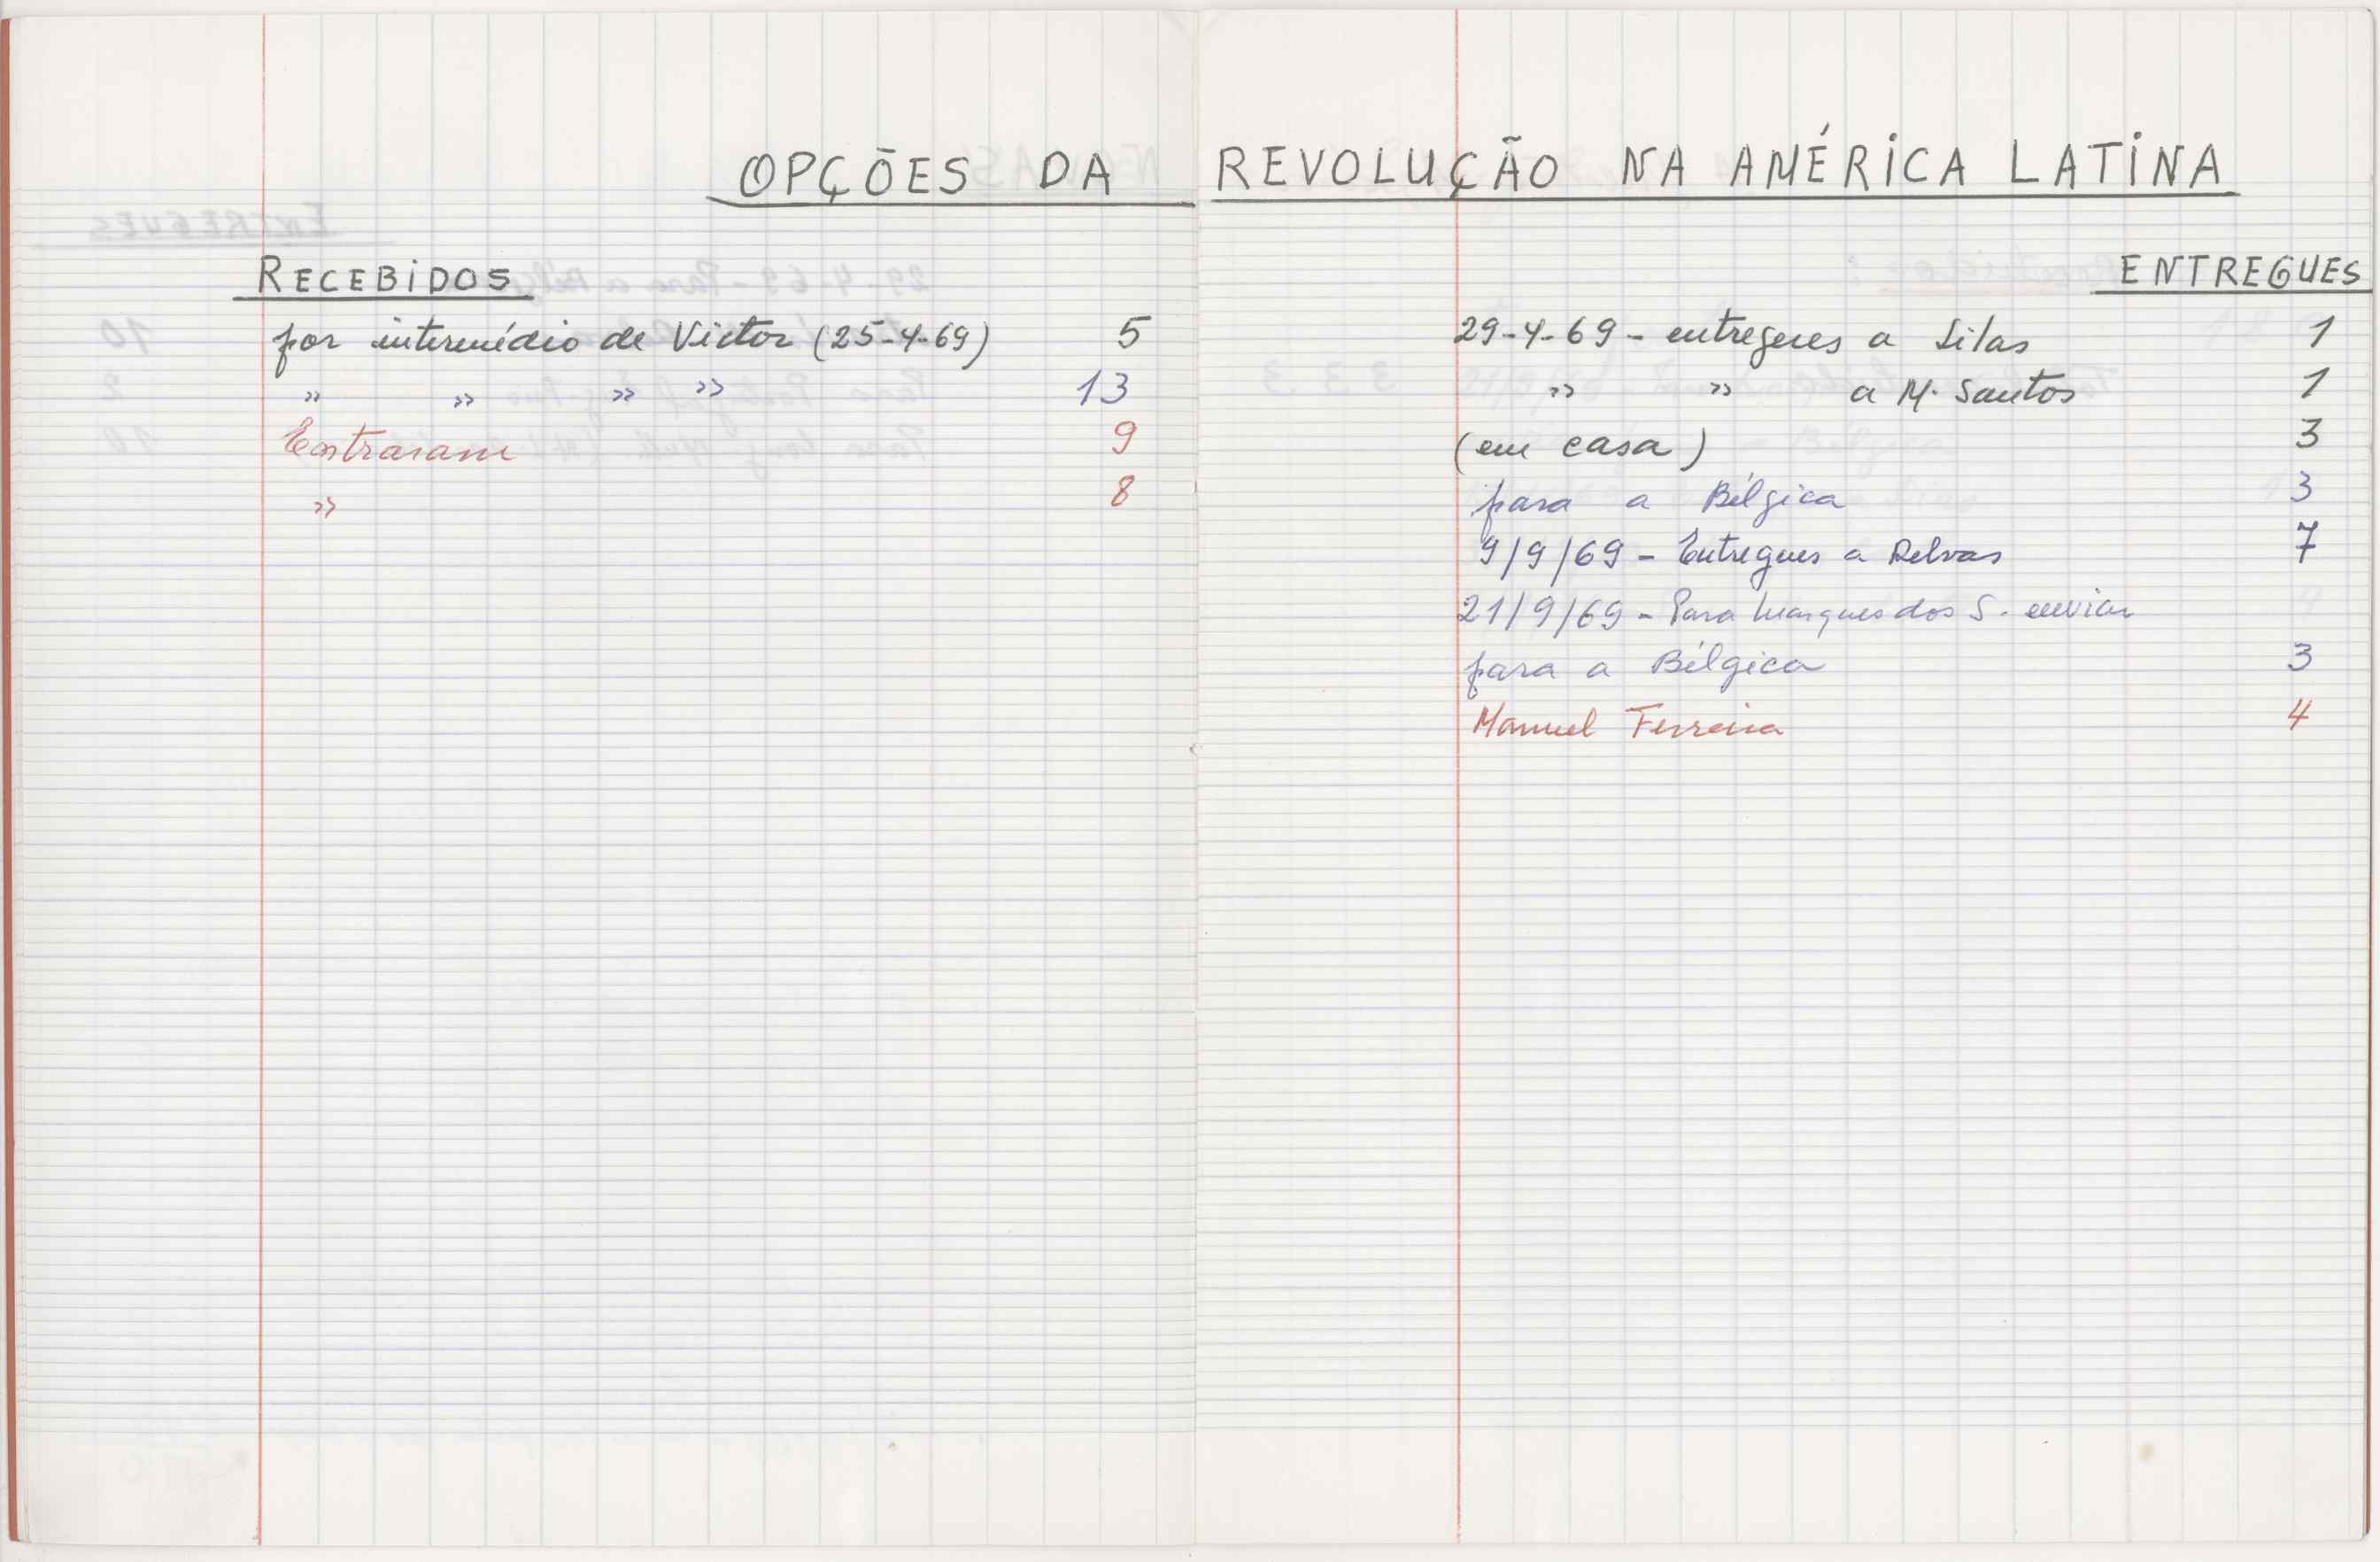 OPÇÕES DA REVOLUÇÃO NA AMÉRICA LATINA
RECEBIDOS
por intermédio de Victor (25-4-69) 5
" " " " 13
Entraram 9
" 8
ENTREGUES
29-4-69 - entregues a Silas 1
" " a M. Santos 1
(em casa) 3
para a Bélgica 3
9/9/69 - Entregues a Relvas 7
21/9/69 - Para Marques dos S. enviar
para a Bélgica 3
Manuel Ferreira 4